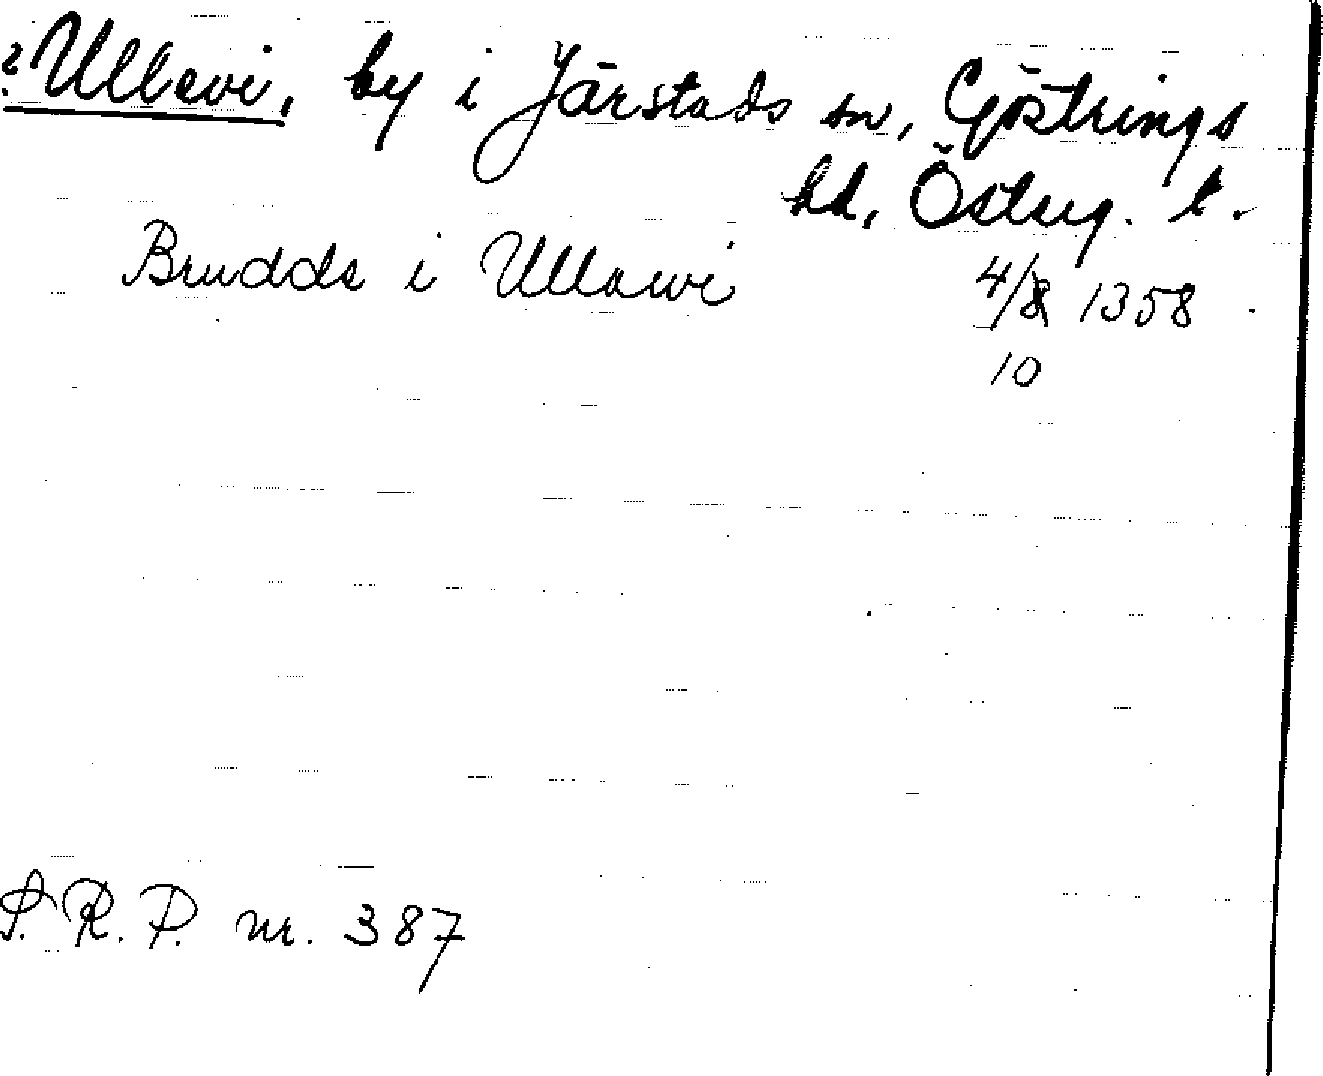 ? Ullevi, by i Järstads sn, Göstrings
hd, Österg. l.
Brudds i Ullawi 4/8 1358
10
S. R. P. nr. 387